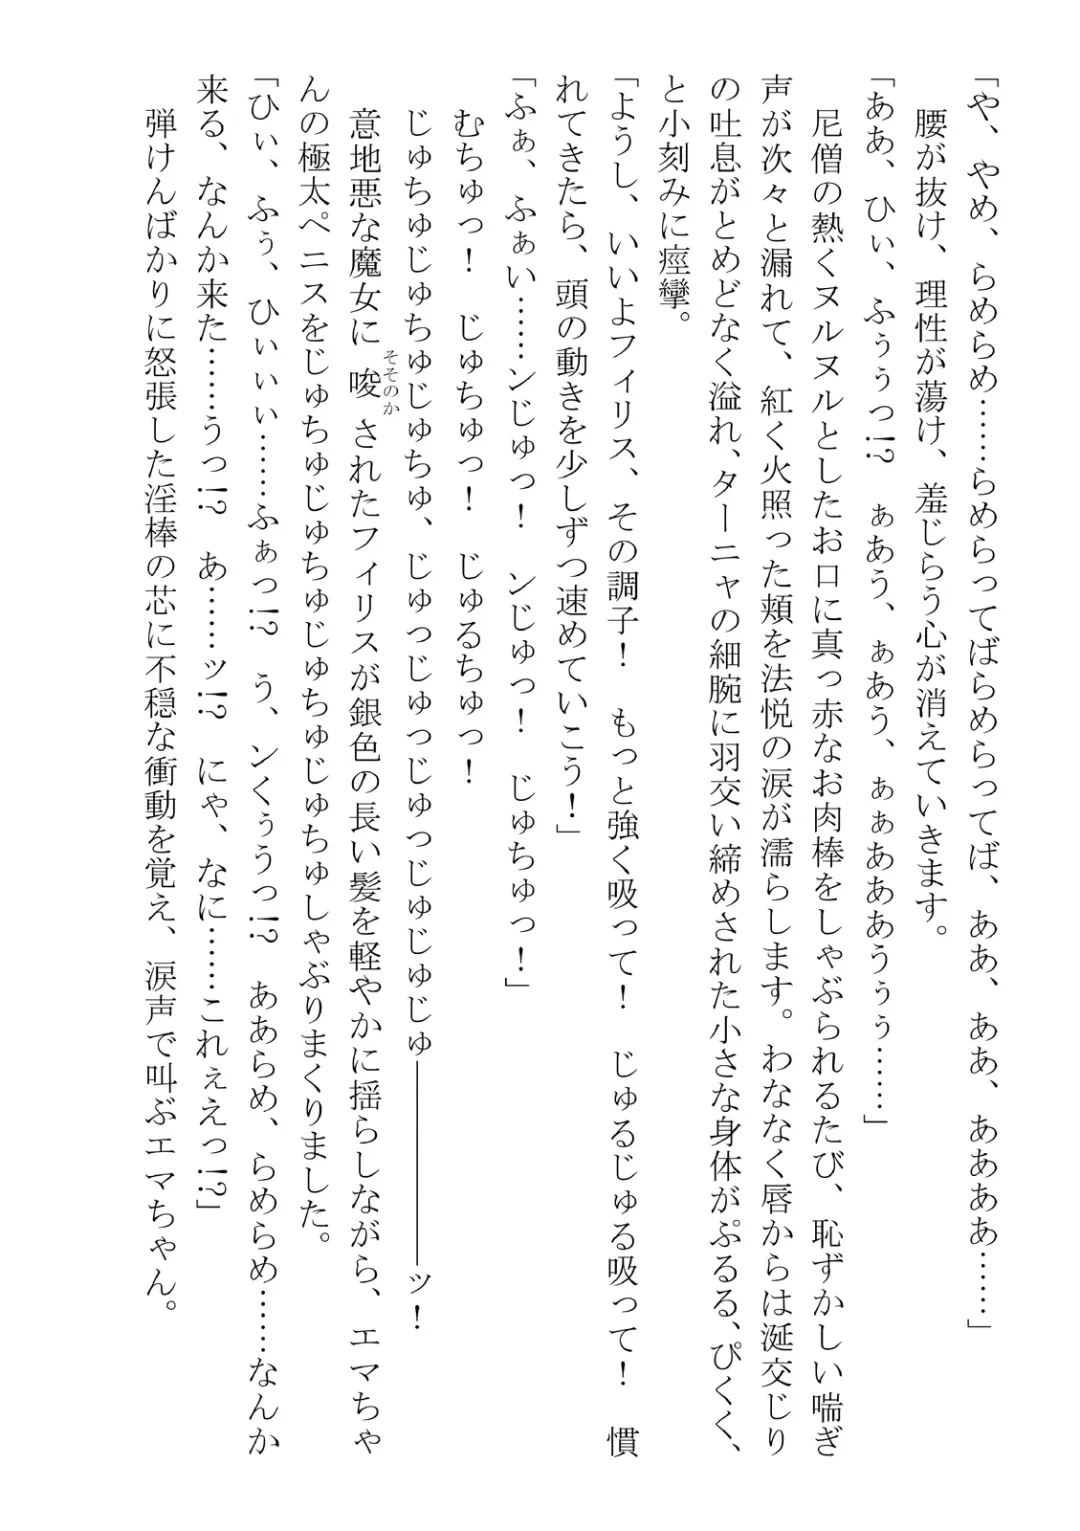 「や、やめ、らめらめ……らめらってばらめらってば、ああ、ああ、ああああ……」
腰が抜け、理性が蕩け、羞じらう心が消えていきます。
「ああ、ひぃ、ふぅぅっ!?　ぁあう、ぁあう、ぁぁあああうぅぅ……」
尼僧の熱くヌルヌルとしたお口に真っ赤なお肉棒をしゃぶられるたび、恥ずかしい喘ぎ
声が次々と漏れて、紅く火照った頬を法悦の涙が濡らします。わななく唇からは涎交じり
の吐息がとめどなく溢れ、ターニャの細腕に羽交い締めされた小さな身体がぷるる、ぴくく、
と小刻みに痙攣。
「ようし、いいよフィリス、その調子！　もっと強く吸って！　じゅるじゅる吸って！　慣
れてきたら、頭の動きを少しずつ速めていこう！」
「ふぁ、ふぁい……ンじゅっ！　ンじゅっ！　じゅちゅっ！」
むちゅっ！　じゅちゅっ！　じゅるちゅっ！
じゅちゅじゅちゅじゅちゅ、じゅっじゅっじゅっじゅじゅじゅ――――――ッ！
意地悪な魔女に唆そそのかされたフィリスが銀色の長い髪を軽やかに揺らしながら、エマちゃ
んの極太ペニスをじゅちゅじゅちゅじゅちゅじゅちゅしゃぶりまくりました。
「ひぃ、ふぅ、ひぃぃぃ……ふぁっ!?　う、ンくぅうっ!?　ああらめ、らめらめ……なんか
来る、なんか来た……うっ!?　あ……ッ!?　にゃ、なに……これぇえっ!?」
弾けんばかりに怒張した淫棒の芯に不穏な衝動を覚え、涙声で叫ぶエマちゃん。